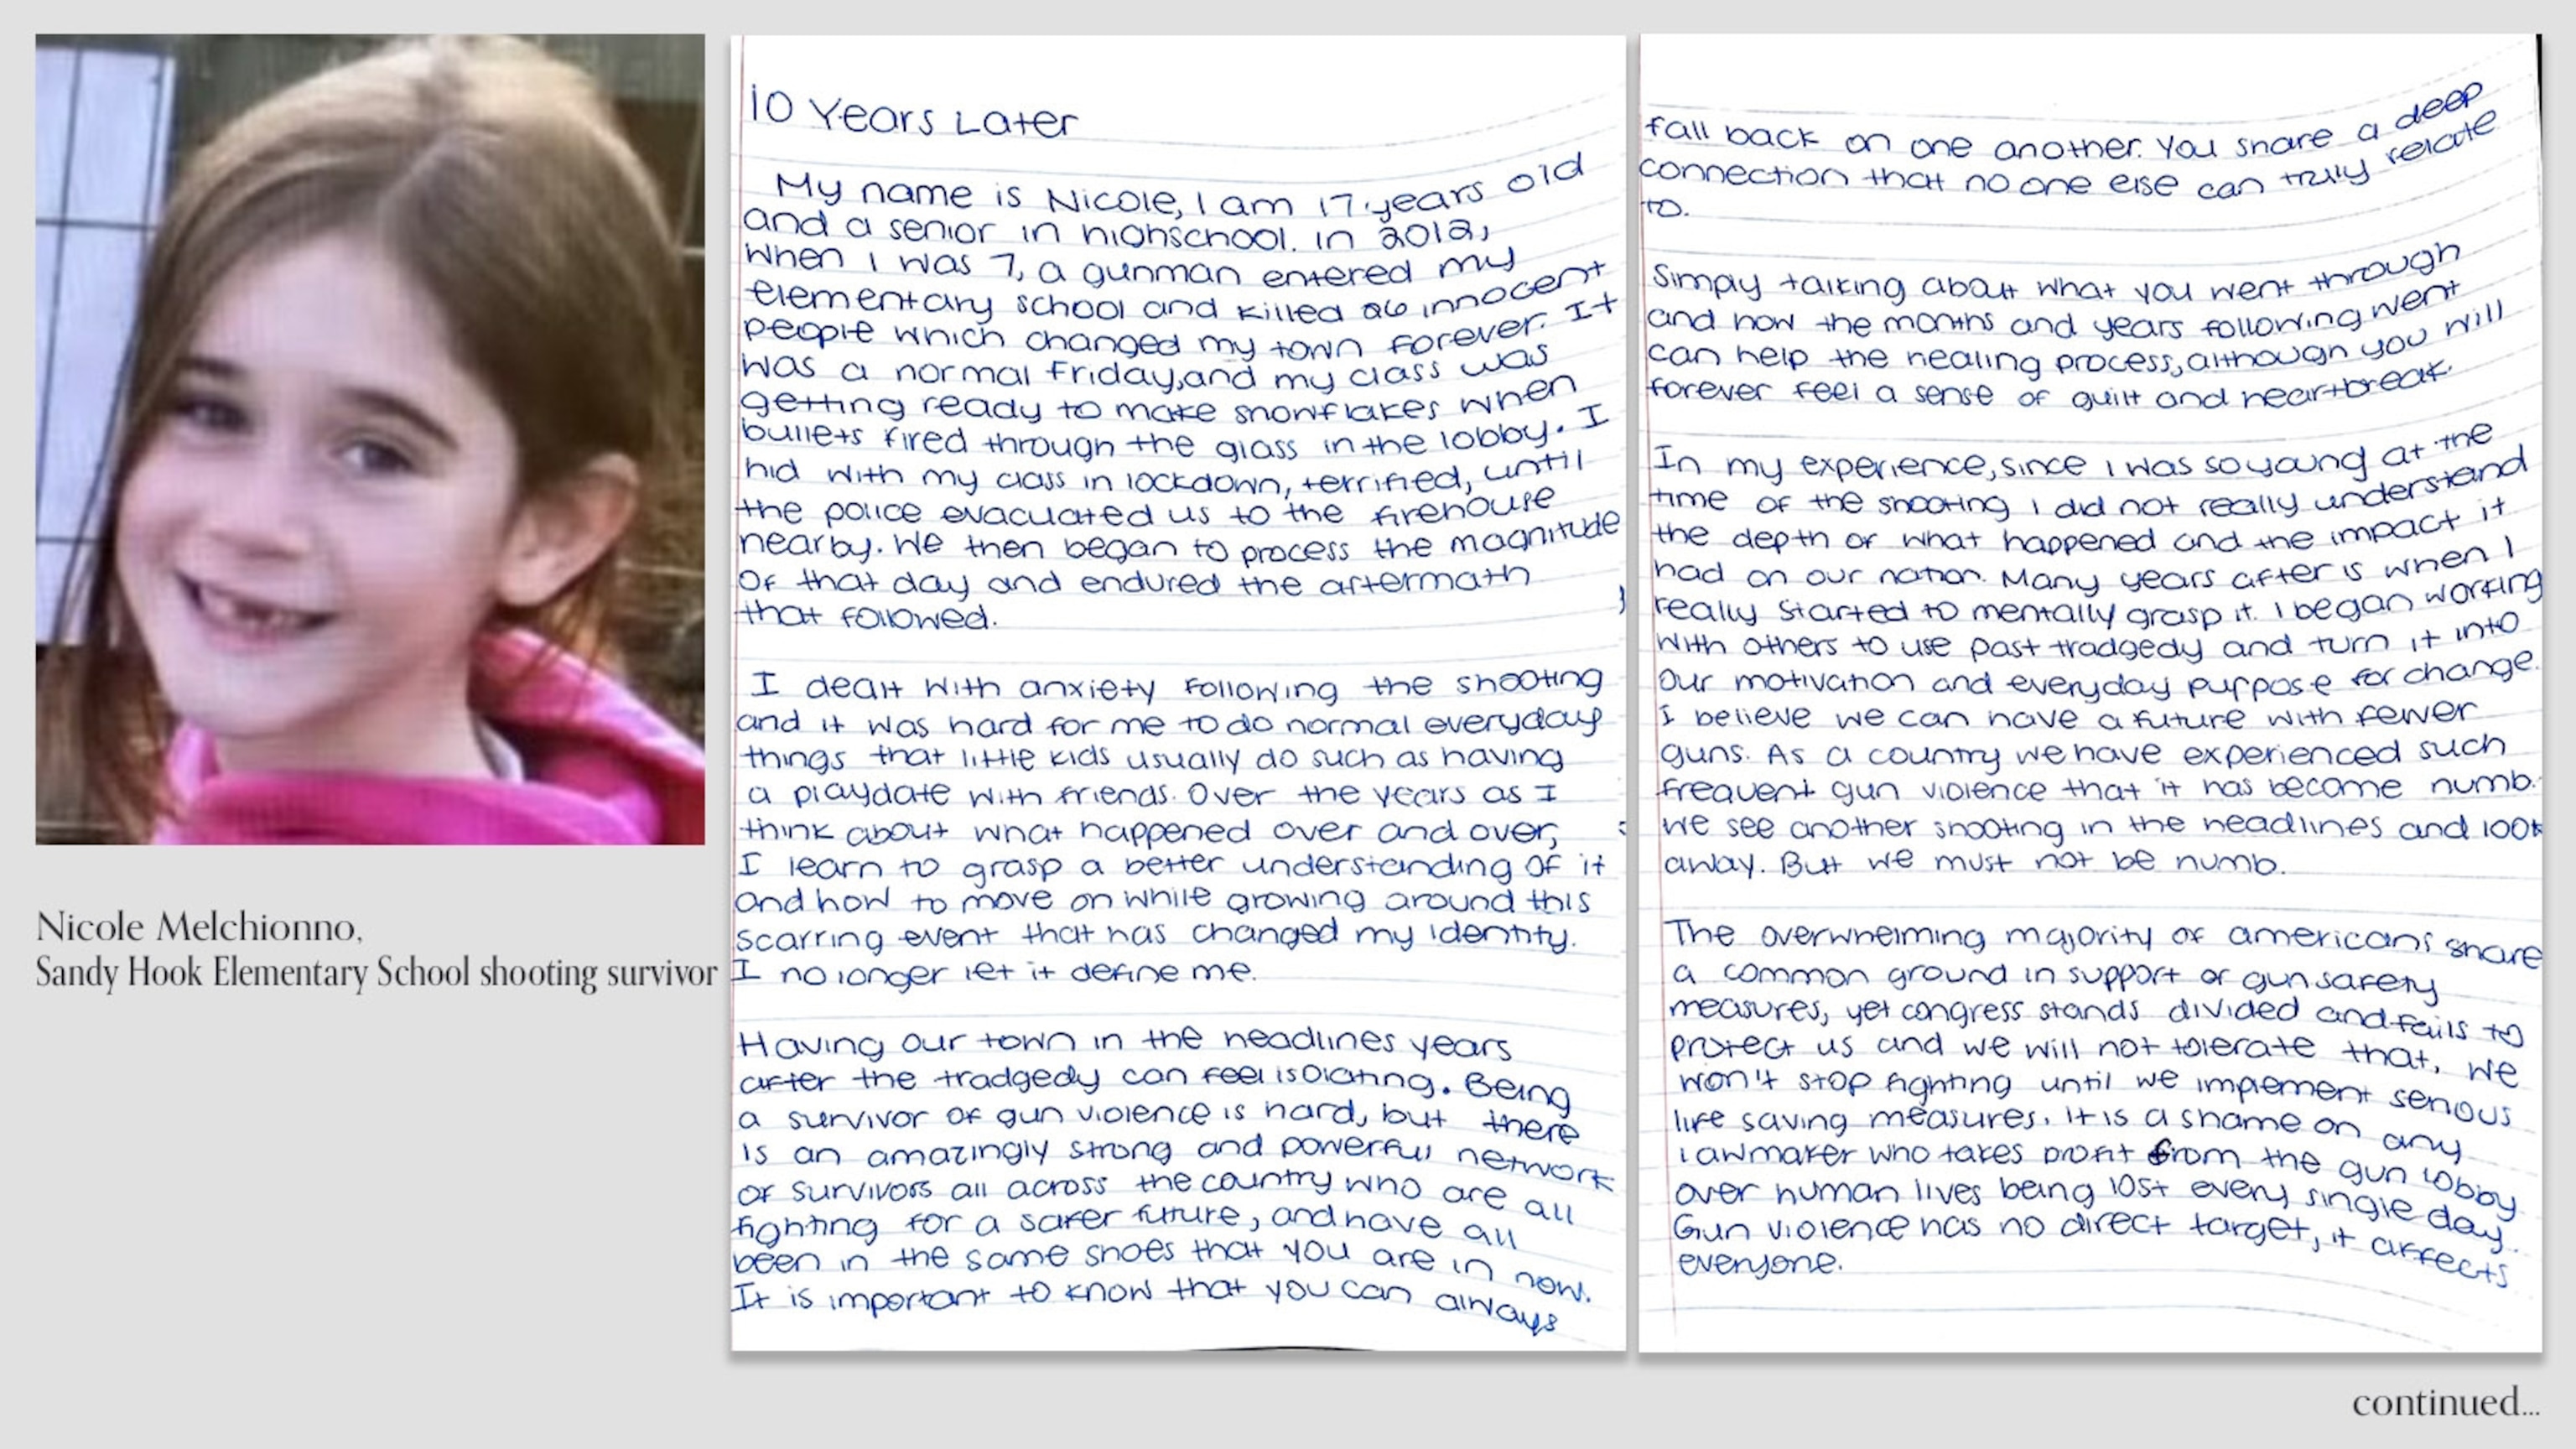 Nicole Melchionno,
Sandy Hook Elementary School shooting survivor
10 Years Later
My name is Nicole, I am 17 years old
and a senior in highschool. In 2012,
when I was 7, a gunman entered my
elementary school and killed 26 innocent
people which changed my town forever. It
was a normal Friday, and my class was
getting ready to make snowflakes when
bullets fired through the glass in the lobby. I
hid with my class in lockdown, terrified, until
the police evacuated us to the firehouse
nearby. We then began to process the magnitude
of that day and endured the aftermath
that followed.
I dealt with anxiety following the shooting
and it was hard for me to do normal everyday
things that little kids usually do such as having
a playdate with friends. Over the years as I
think about what happened over and over,
I learn to grasp a better understanding of it
and how to move on while growing around this
scarring event that has changed my identity.
I no longer let it define me.
Having our town in the headlines years
after the tradgedy can feel isolating. Being
a survivor of gun violence is hard, but there
is an amazingly strong and powerful network
of survivors all across the country who are all
fighting for a safer future, and have all
been in the same shoes that you are in now.
It is important to know that you can always
fall back on one another. You share a deep
connection that no one else can truly relate
to.
Simply talking about what you went through
and how the months and years following went
can help the healing process, although you will
forever feel a sense of guilt and heartbreak.
In my experience, since I was so young at the
time of the shooting I did not really understand
the depth of what happened and the impact it
had on our nation. Many years after is when I
really started to mentally grasp it. I began working
with others to use past tradgedy and turn it into
our motivation and everyday purpose for change.
I believe we can have a future with fewer
guns. As a country we have experienced such
frequent gun violence that it has become numb.
We see another shooting in the headlines and look
away. But we must not be numb.
The overwhelming majority of americans share
a common ground in support of gun safety
measures, yet congress stands divided and fails to
protect us and we will not tolerate that. We
won't stop fighting until we implement serious
life saving measures. It is a shame on any
lawmaker who takes profit from the gun lobby
over human lives being lost every single day.
Gun violence has no direct target, it affects
everyone.
continued...